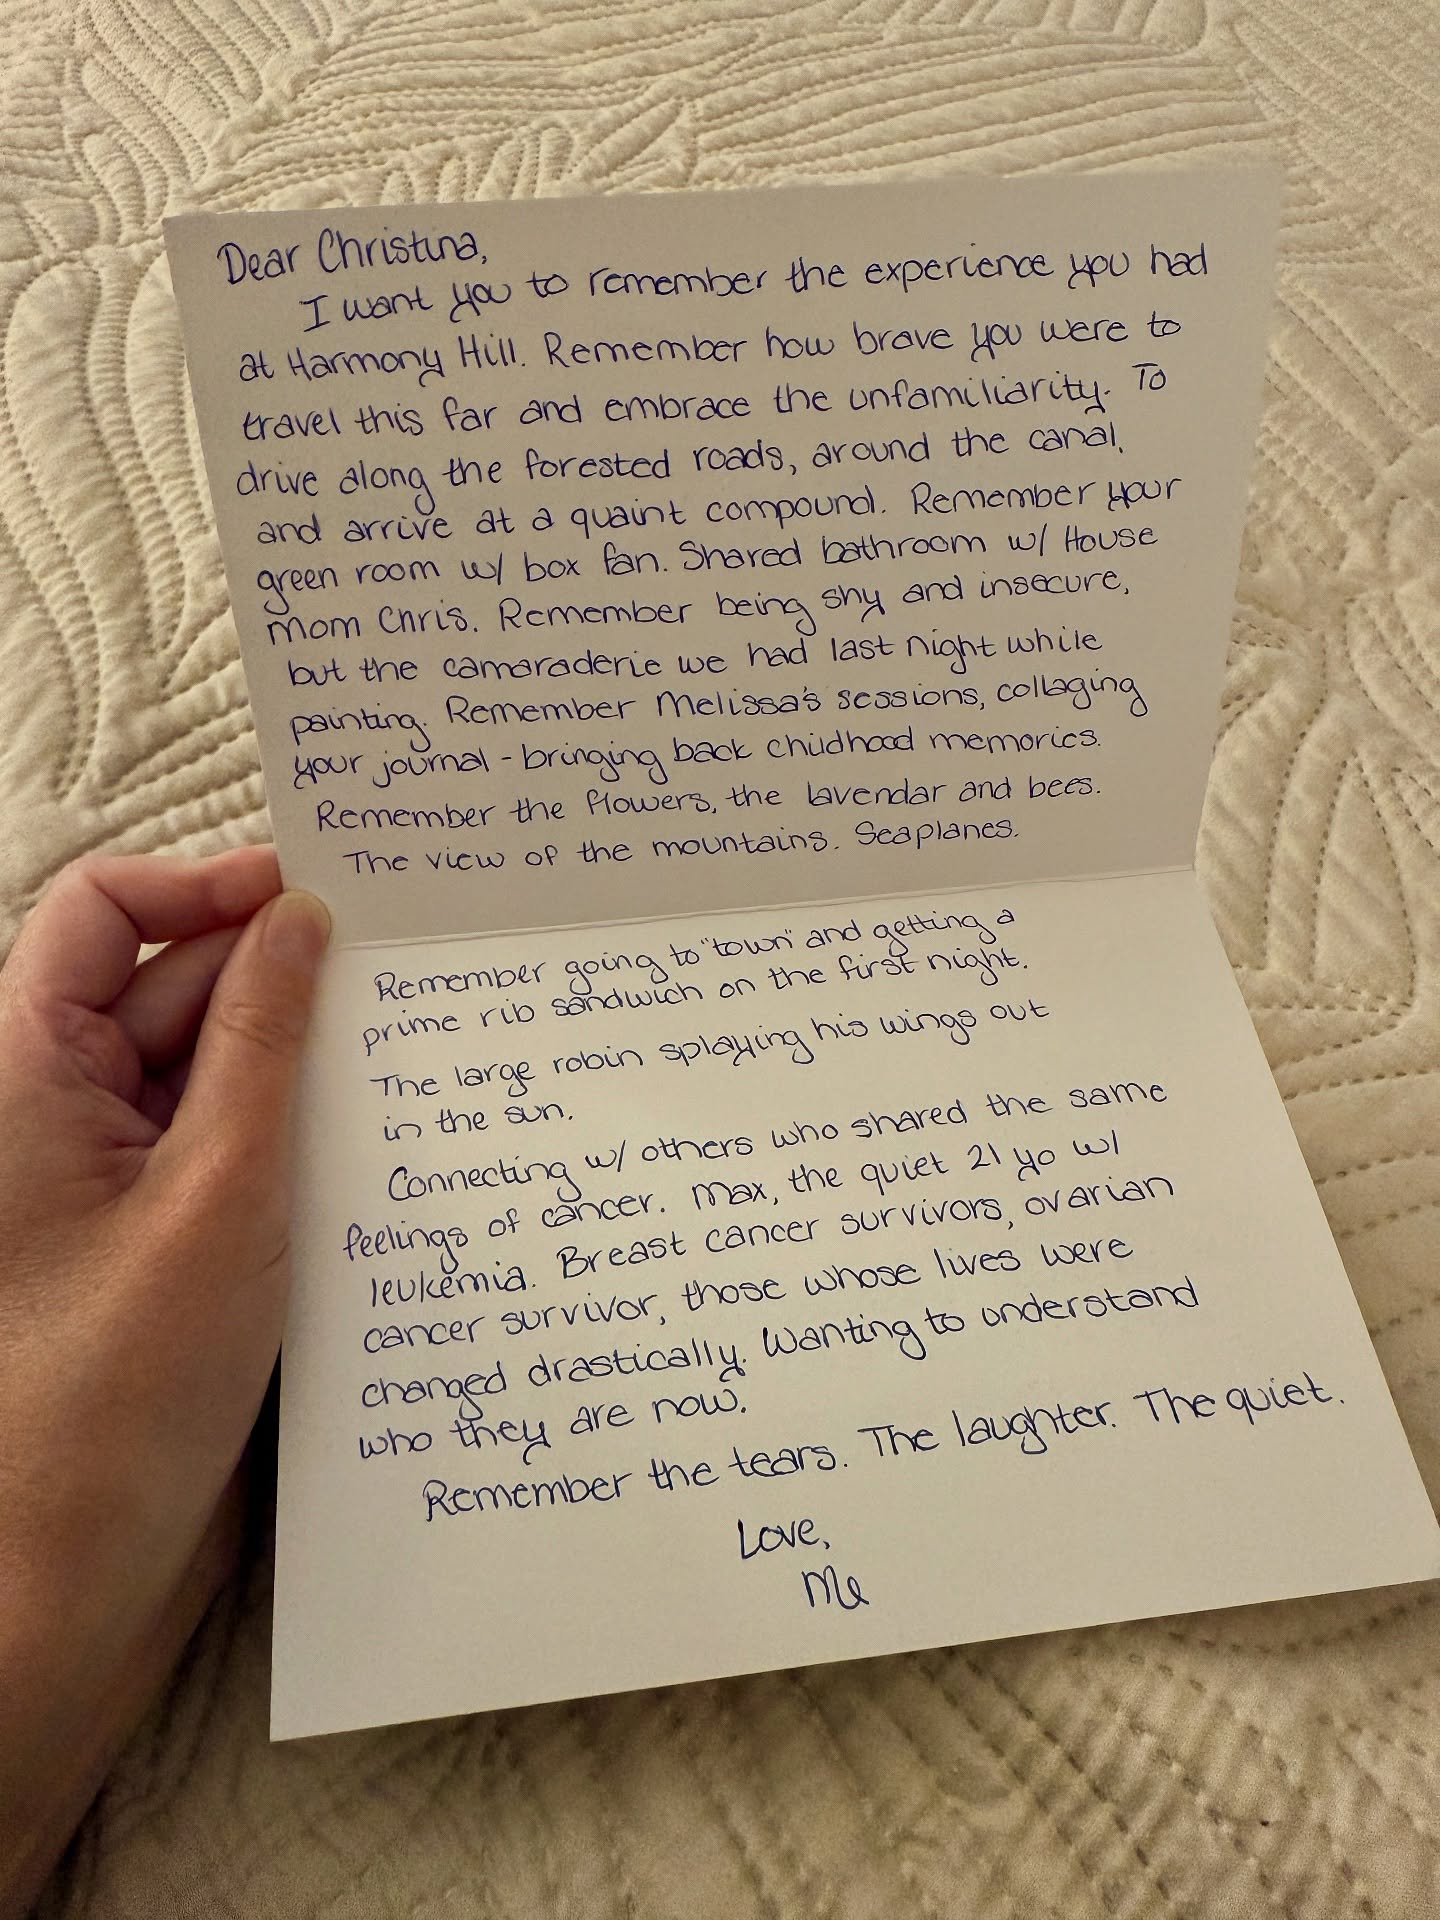 Dear Christina,
I want you to remember the experience you had
at Harmony Hill. Remember how brave you were to
travel this far and embrace the unfamiliarity. To
drive along the forested roads, around the canal,
and arrive at a quaint compound. Remember your
green room w/ box fan. Shared bathroom w/ House
Mom Chris. Remember being shy and insecure,
but the camaraderie we had last night while
painting. Remember Melissa's sessions, collaging
your journal - bringing back childhood memories.
Remember the flowers, the lavendar and bees.
The view of the mountains. Seaplanes.
Remember going to "town" and getting a
prime rib sandwich on the first night.
The large robin splaying his wings out
in the sun.
Connecting w/ others who shared the same
feelings of cancer. Max, the quiet 21 yo w/
leukemia. Breast cancer survivors, ovarian
cancer survivor, those whose lives were
changed drastically. Wanting to understand
who they are now.
Remember the tears. The laughter. The quiet.
Love,
Me